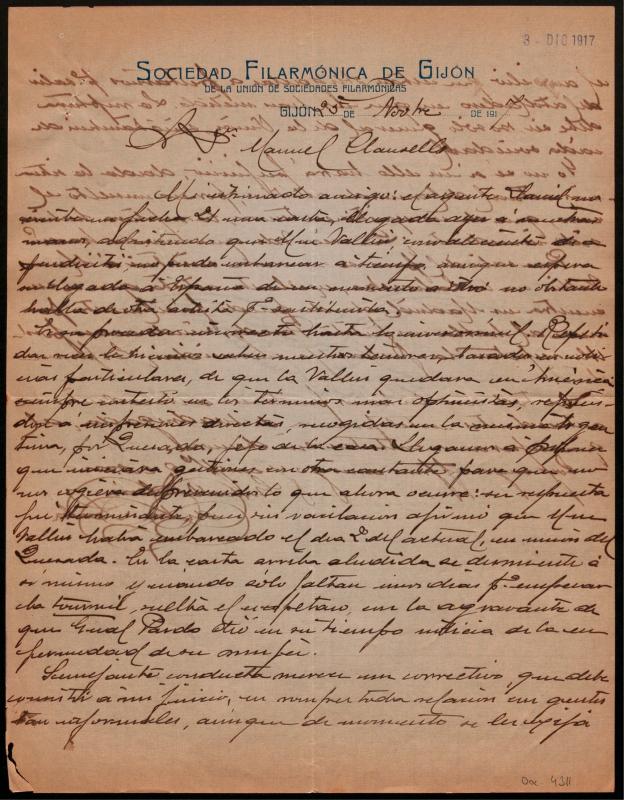 3 - DIC 1917
SOCIEDAD FILARMÓNICA DE GIJÓN
DE LA UNIÓN DE SOCIEDADES FILARMÓNICAS
GIJÓN 25 DE Novbre DE 1917
Sr. Manuel Clausells
Mi estimado amigo: el agente Daniel nos
escribe con fecha 21 una carta, llegada ayer á nuestras
manos, advirtiendo que Mme Vallin convaleciente de
no puede embarcar á tiempo, aunque espera
su llegada á España de un momento a otro no obstante
habla de otra artista pª sustituirla.
Es su incorrecta hasta lo inverosimil.
dar
cias particulares, de que la Vallin quedara en América
siempre contestó en los términos mas optimistas,
á impresiones directas, recogidas en la misma Argen
tina, por Quesada, jefe de la casa. Llegamos á
que iniciara gestiones con otra cantante para que no
nos lo que ahora ocurre: su respuesta
fué pues sin vacilacion afirmó que Mme
Vallin habia embarcado el dia 2 del actual, en union del
Quesada. En la carta arriba aludida se desmiente á
sí mismo y cuando sólo faltan unos dias pª empezar
la tournée, suelta el con la agravante de
que Gual Pardo dió en su tiempo noticia de la en
fermedad de su mujer.
Semejante conducta merece un correctivo, que debe
consistir á mi juicio, en romper toda relacion con gentes
tan informales, aunque de momento se les exija
Doc. 4311